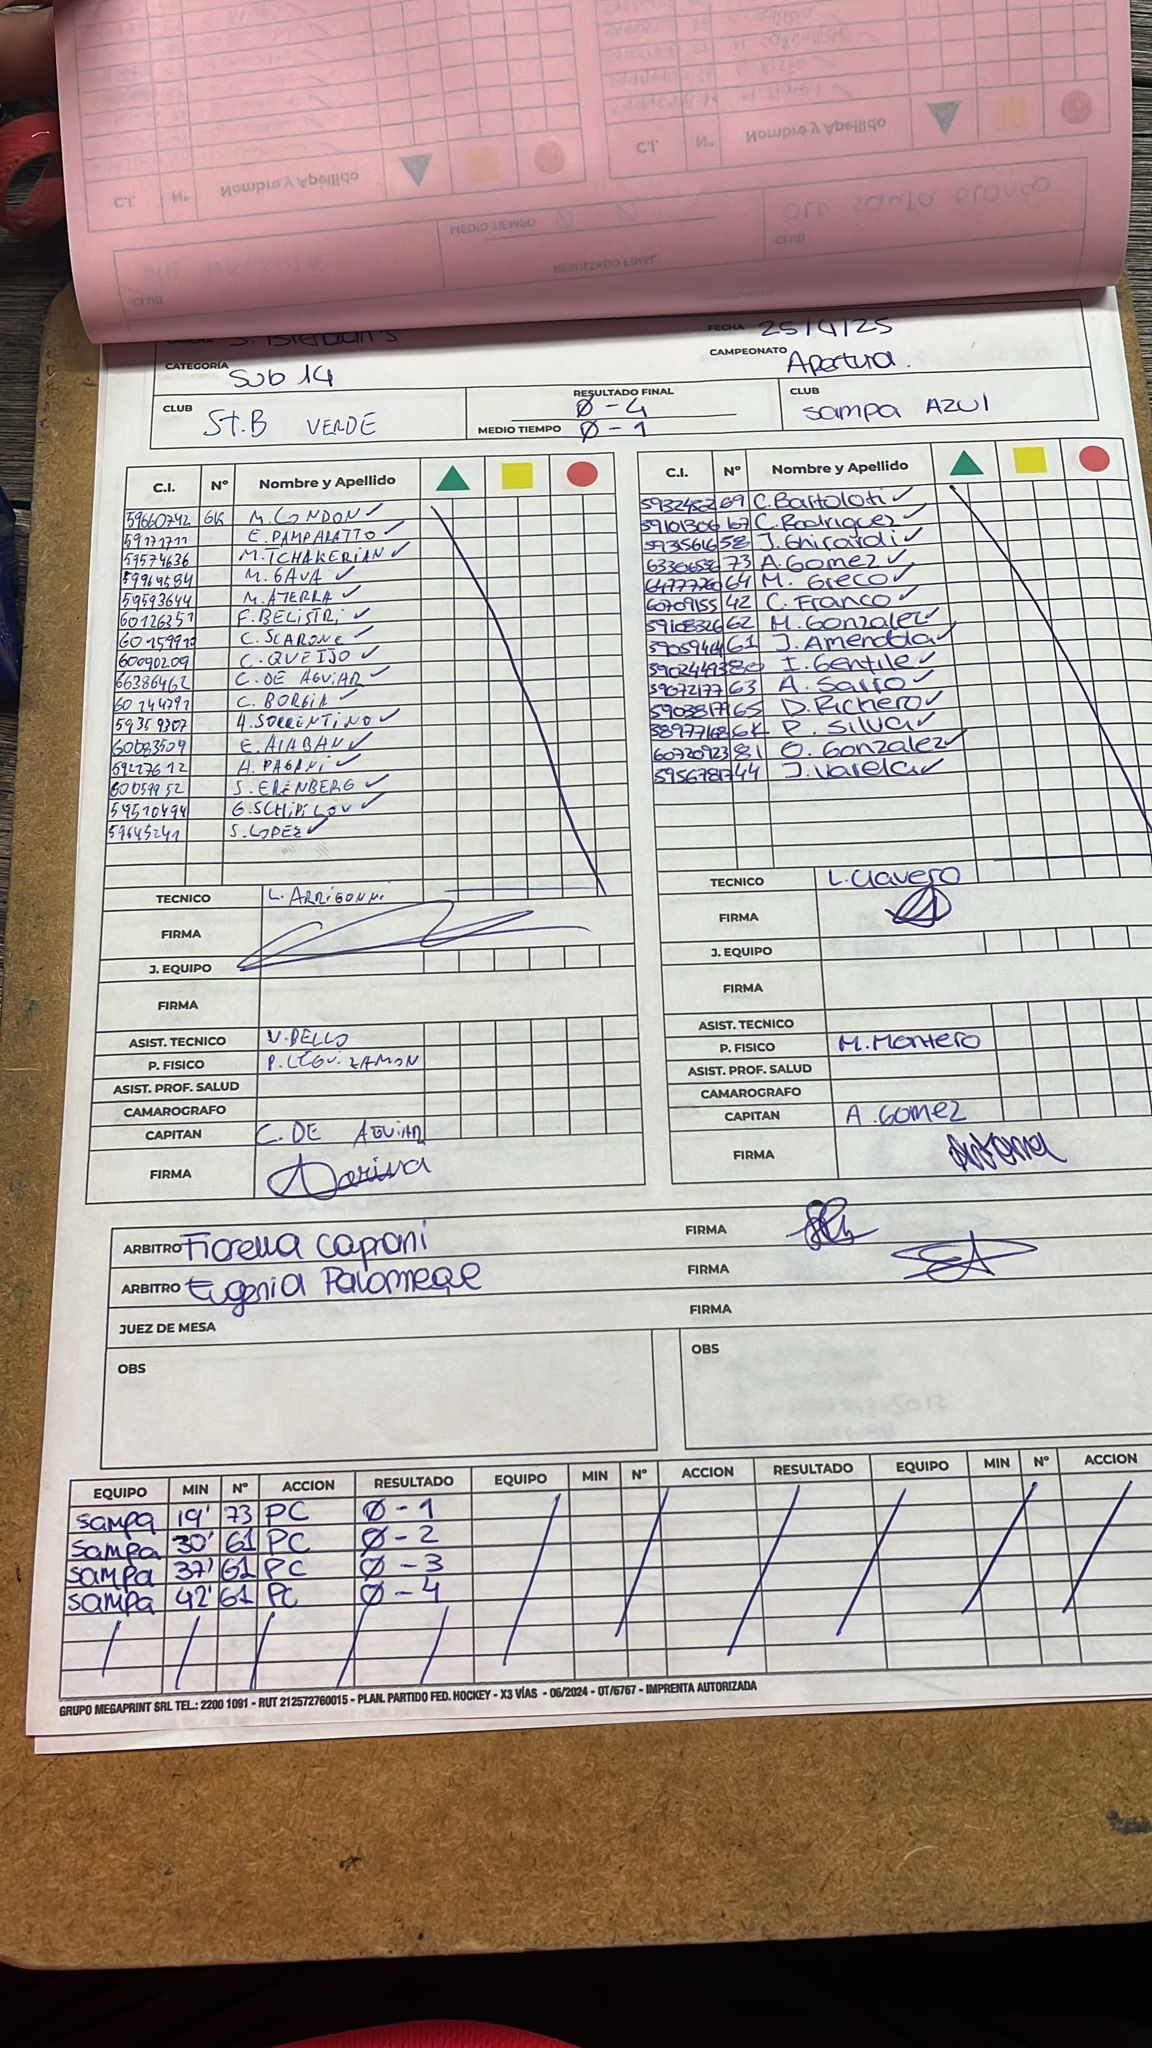 FECHA 25/4/25
CATEGORÍA Sub 14
CAMPEONATO Apertura.
CLUB St.B VERDE
RESULTADO FINAL Ø - 4
MEDIO TIEMPO Ø - 1
CLUB Sampa AZUl
C.I. Nº Nombre y Apellido
59660742 GK M. LONDON ✓
E. PAMPARATTO ✓
59574636 M. TCHAKERIAN ✓
M. GAVA ✓
59593644 M. ATERRA ✓
60126351 F. BELISTRI ✓
C. SCARONE ✓
60090209 C. QUEIJO ✓
66386462 C. DE AGUIAR ✓
C. BORGIA ✓
59359307 A. SORRENTINO ✓
60083509 E. ALABAN ✓
59227612 A. PAGANI ✓
S. ERENBERG ✓
59510494 G. SCHIPILOV ✓
59645241 S. LOPEZ ✓
TECNICO L. ARRIGONNI
FIRMA
J. EQUIPO
FIRMA
ASIST. TECNICO V. BELLO
P. FISICO P. LEGUIZAMON
ASIST. PROF. SALUD
CAMAROGRAFO
CAPITAN C. DE AGUIAR
FIRMA
C.I. Nº Nombre y Apellido
69 C. Bartoloti ✓
59101306 67 C. Rodriguez ✓
59315616 58 J. Ghirardi ✓
73 A. Gomez ✓
64777720 64 M. Greco ✓
60709155 42 C. Franco ✓
59108326 62 M. Gonzalez ✓
61 J. Amendola ✓
59024493 80 I. Gentile ✓
59072177 63 A. Sarro ✓
59038179 65 D. Richero ✓
38977168 GK P. Silva ✓
60720923 81 O. Gonzalez ✓
59567817 44 J. Varela ✓
TECNICO L. Clavero
FIRMA
J. EQUIPO
FIRMA
ASIST. TECNICO
P. FISICO M. Montero
ASIST. PROF. SALUD
CAMAROGRAFO
CAPITAN A. Gomez
FIRMA
ARBITRO Fiorella Caprani FIRMA
ARBITRO Eugenia Palomeqe FIRMA
JUEZ DE MESA FIRMA
OBS OBS
EQUIPO MIN Nº ACCION RESULTADO EQUIPO MIN Nº ACCION RESULTADO EQUIPO MIN Nº ACCION
Sampa 19' 73 PC Ø - 1
Sampa 30' 61 PC Ø - 2
Sampa 37' 61 PC Ø - 3
Sampa 42' 61 PC Ø - 4
GRUPO MEGAPRINT SRL TEL.: 2200 1091 - RUT 212572760015 - PLAN. PARTIDO FED. HOCKEY - X3 VÍAS - 06/2024 - OT/6767 - IMPRENTA AUTORIZADA